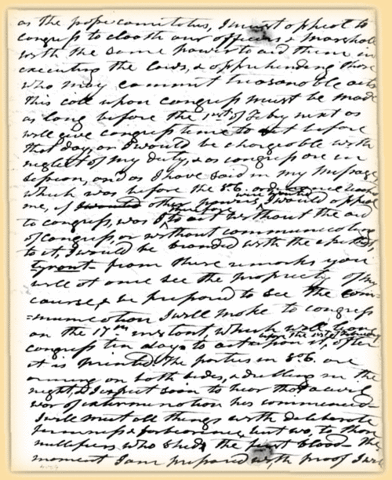 as the posse comitatus, I must appeal to
congress to cloath our officers & marshall
with the same power to aid them in
executing the laws, & apprehending those
who may commit treasonable acts
this call upon congress must be made
as long before the 1rst of Feby next as
will give congress time to act before
that day, or I would be chargeable with
neglect of my duty, & as congress are in
session, and as I have said in my message
which was before the So. ordinance reached
me, if other powers were wanted I would appeal
to congress, was I to act without the aid
of congress, or without communicating
to it, I would be branded with the epithet,
tyrant. from these remarks you
will at once see the propriety of my
course, & be prepared to see the com-
=munication I will make to congress
on the 17th instant, which will give
congress ten days to act upon it, before the 1rst of February after
it is printed. The parties in So. C. are
arming on both sides, & drilling in the
night, & I expect soon to hear that a civil
war of extermination has commenced.
I will meet all things with deliberate
firmness & forbearance, but wo, to those
nullifiers who shed the first blood. The
moment I am prepared with proof I will